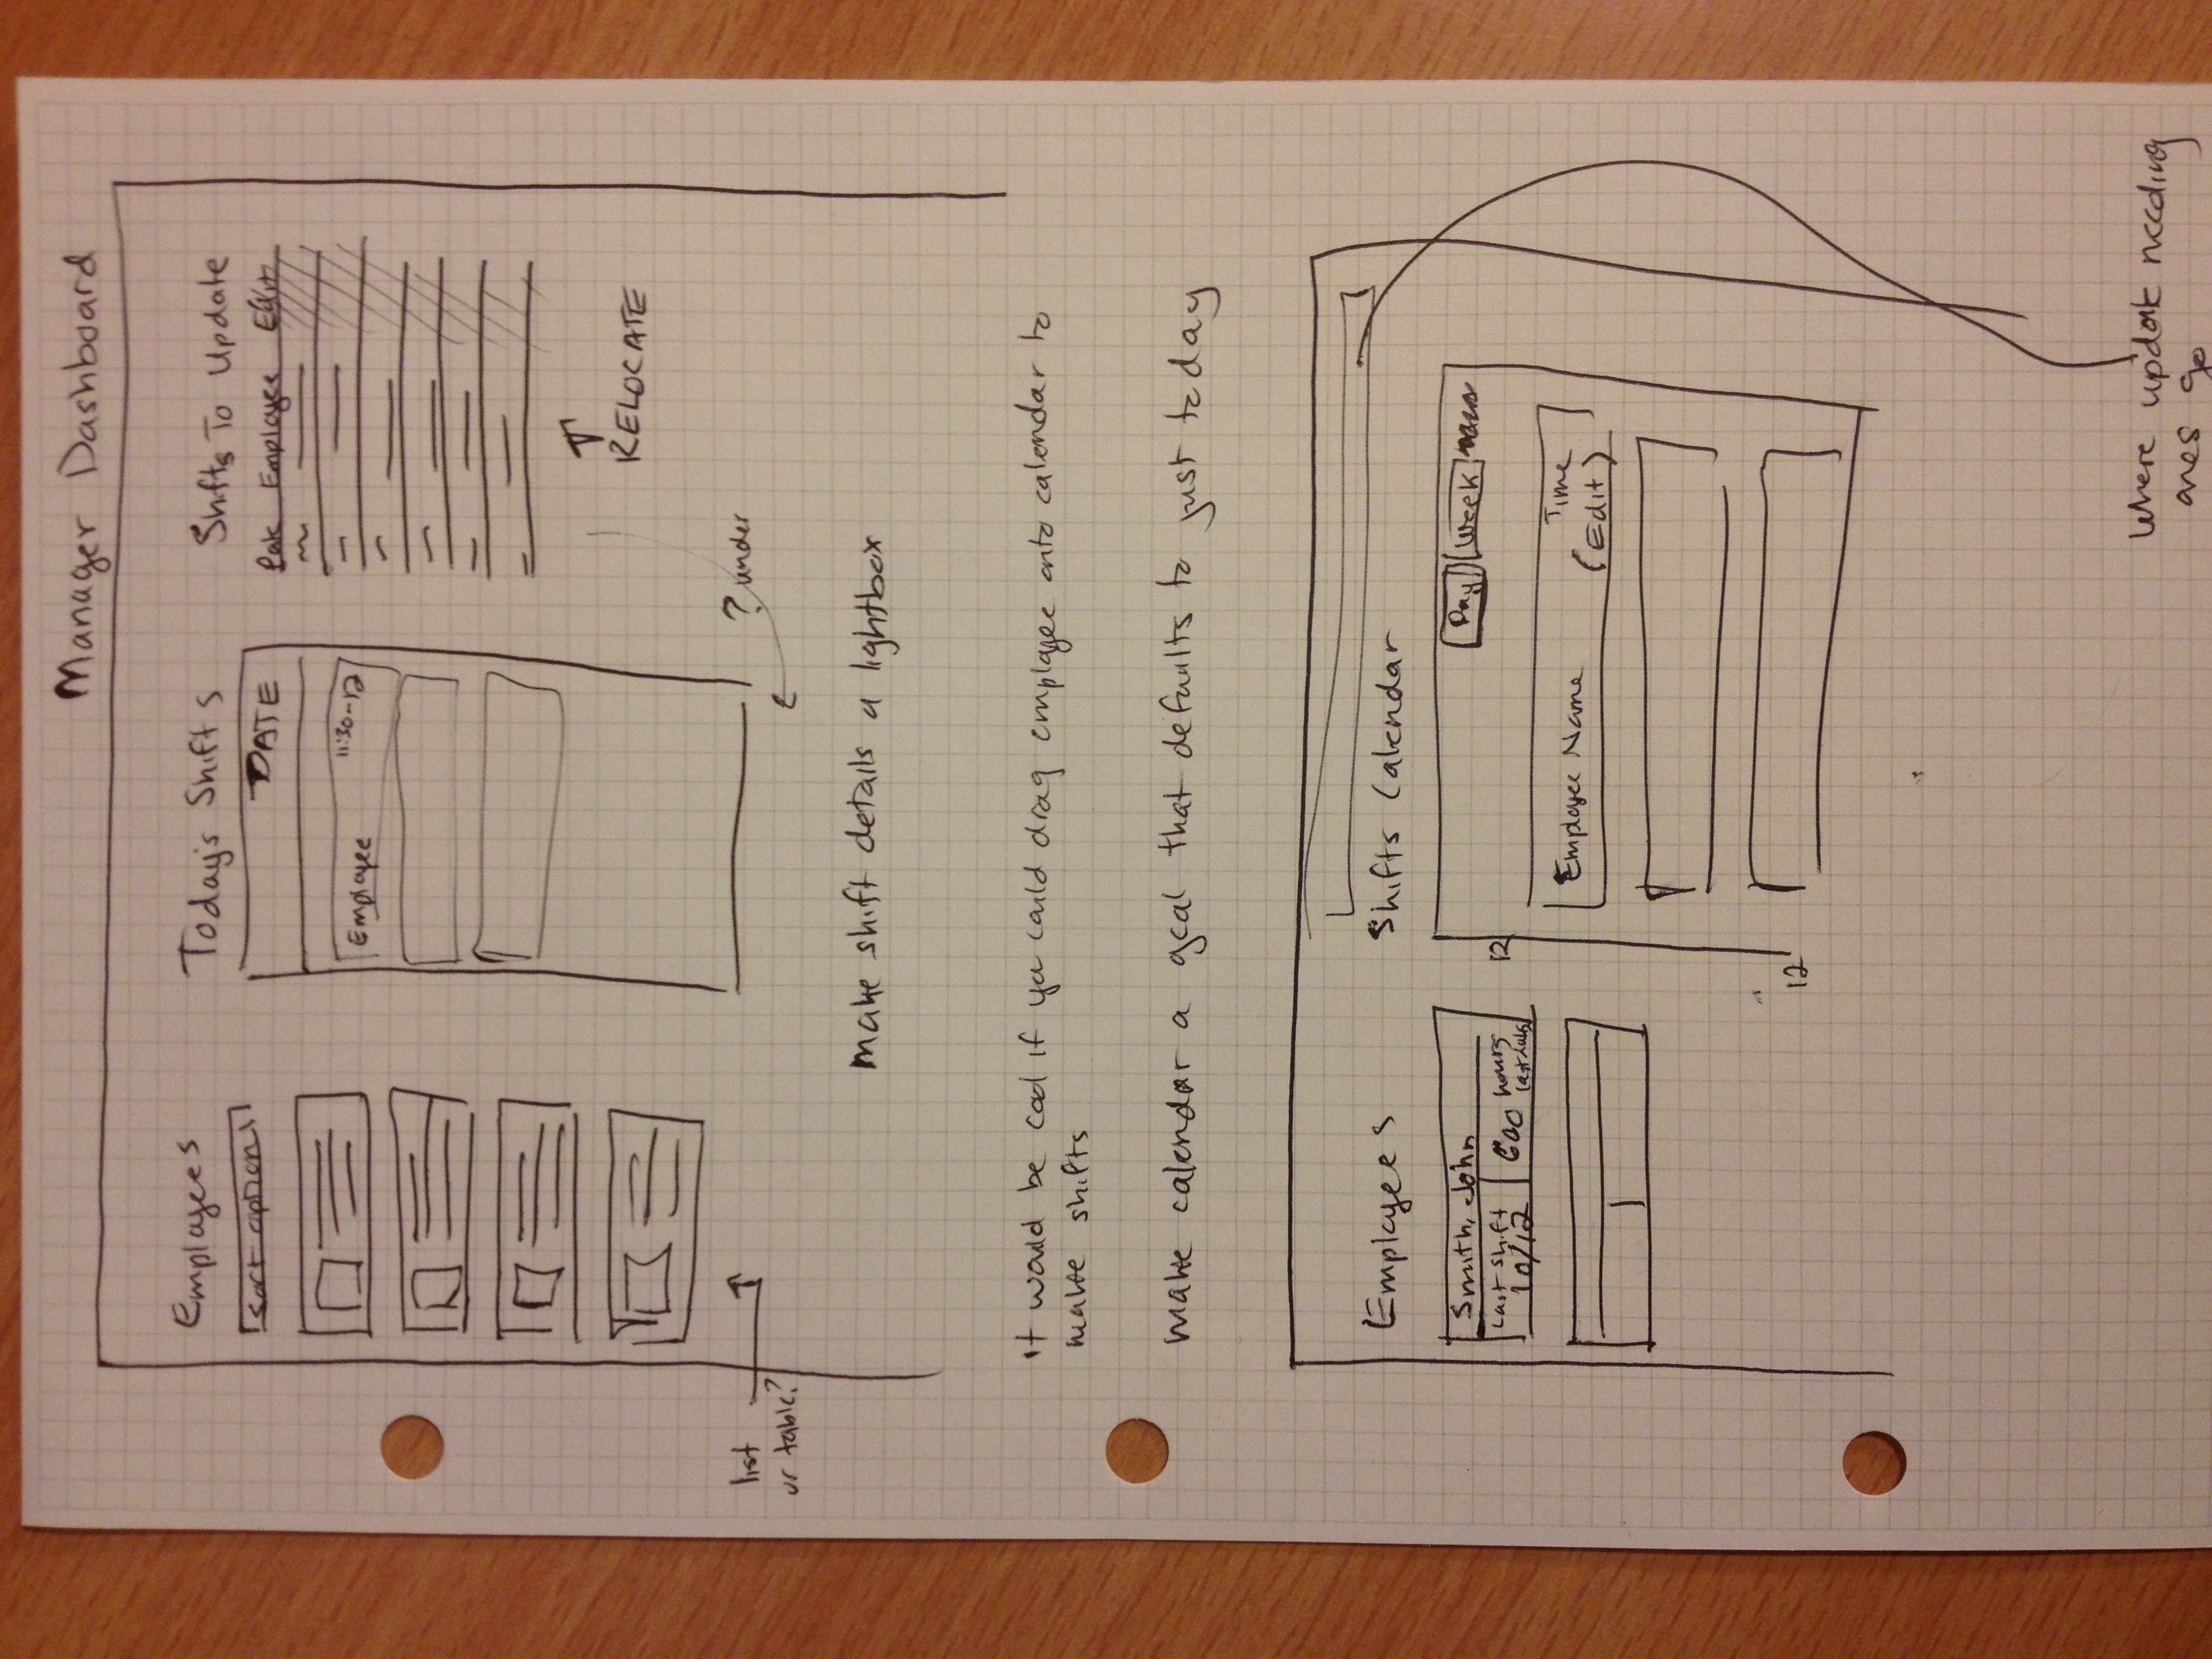 Manager Dashboard
Employees
sort options
Today's Shifts
DATE
Employee 11:30-12
Shifts To Update
Date Employee Edit
RELOCATE
list
or table?
? under
make shift details a lightbox
it would be cool if you could drag employee onto calendar to
make shifts
make calendar a gcal that defaults to just today
Employees
Smith, John
Last shift
10/12
600 hours
Shifts Calendar
Day Week
12
Employee Name
Time
(Edit)
12
Where update needing
ones go